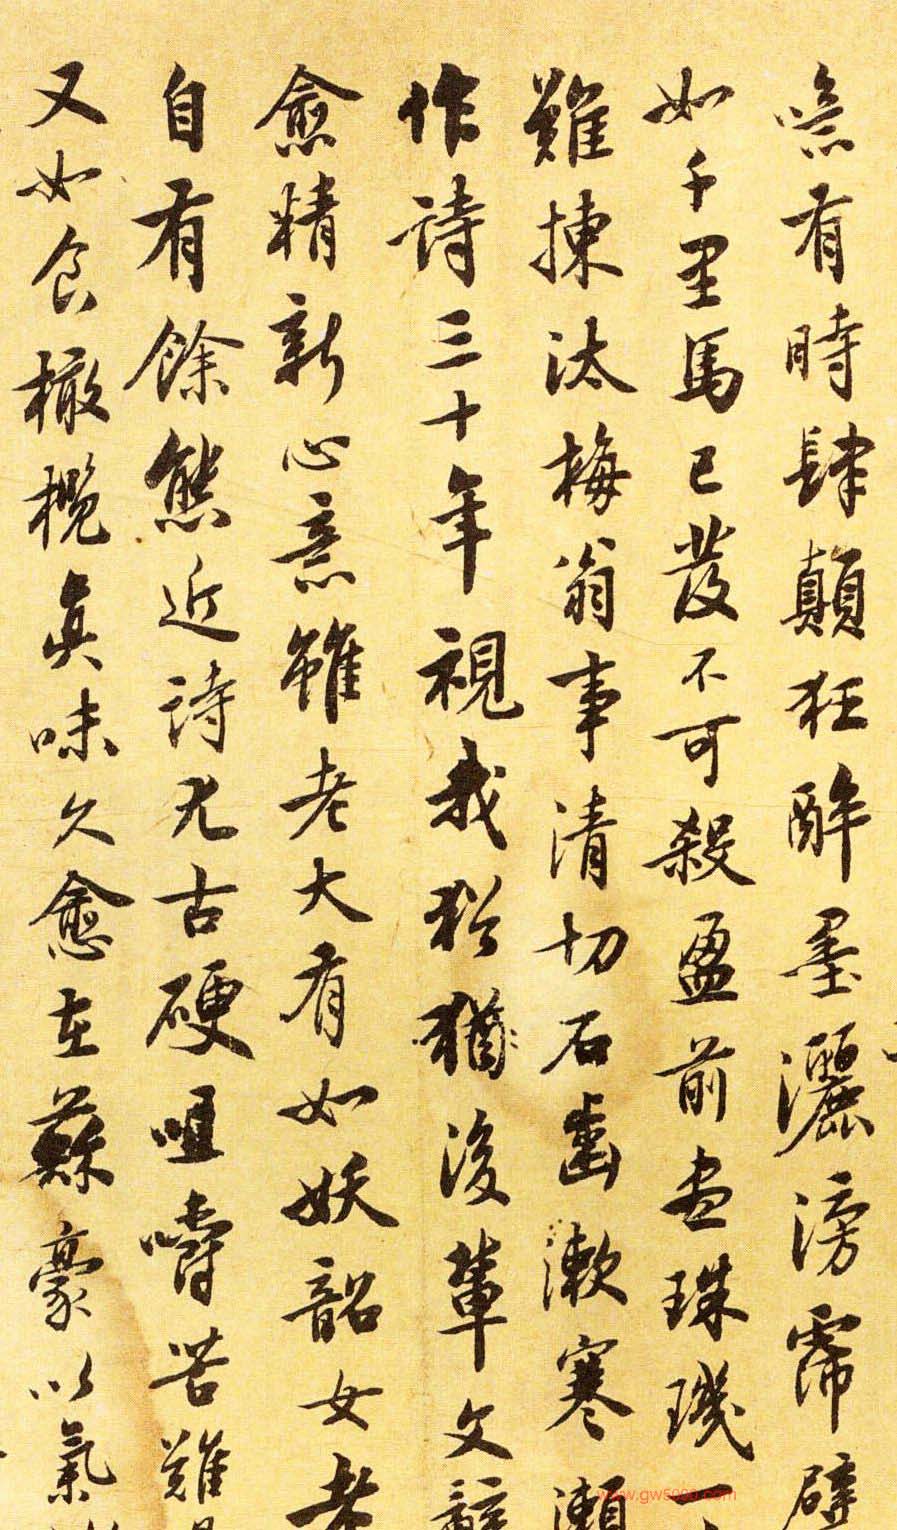 噫有時肆顛狂醉墨灑滂霈
如千里馬已發不可殺盈前盡珠璣
難揀汰梅翁事清切石齒漱寒瀨
作詩三十年視我猶後輩文辭
愈精新心意雖老大有如妖韶女老
自有餘態近詩尤古硬咀嚼苦難
又如食橄欖真味久愈在蘇豪以氣